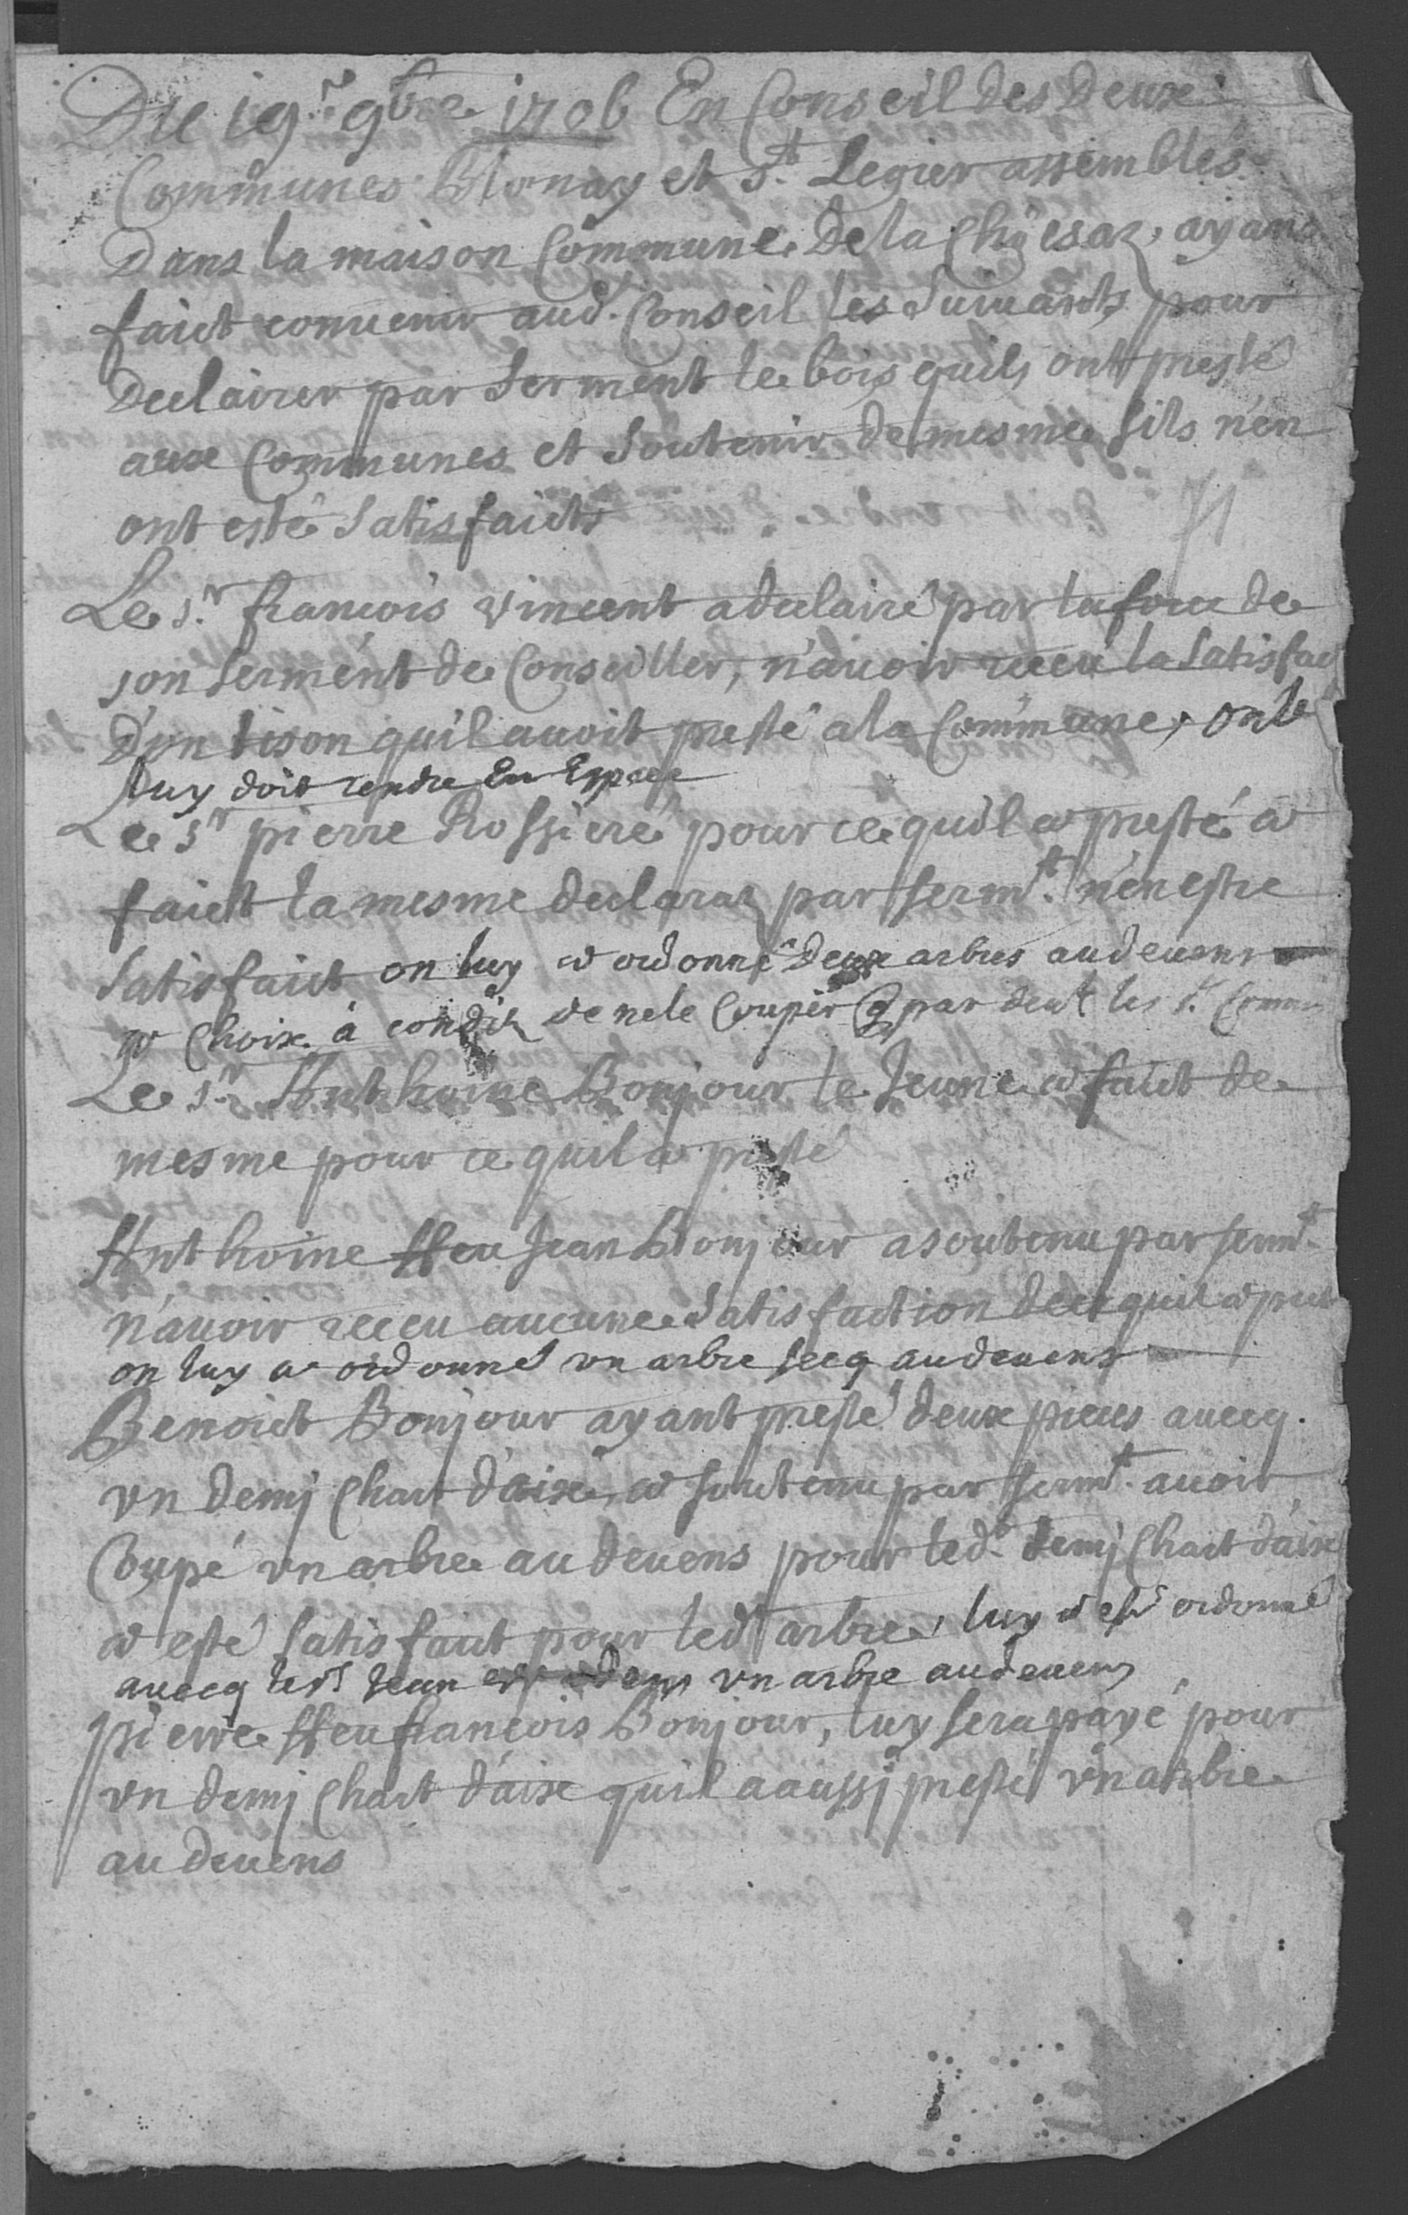 Du 19.e 9bre 1706 En Conseil des Deux
Communes Blonay et St. Legier assemblés
Dans la maison Commune De la Chiesaz, ayans
faict convenir aud. Conseil les Suivants pour
Declairer par Serment le bois quils ont presté
aux Communes et Soutenir de mesme sils n'en
ont esté Satisfaicts
Le Sr. francois vincent a declairé par la force de
son Serment de Conseiller, n'avoir receu la Satisfac
d'un tison quil avoit presté a la Commune, on le
luy doit rendre En Espece
Le Sr pierre Rossiere pour ce quil a presté a
faict la mesme declaraz par sermt. n'en estre
Satisfaict on luy a ordonné deux arbres au devens
a choix à condiz de ne le Couper q par devt les Sr.
Le Sr. Anthoine Bonjour le Jeune a faict de
mesme pour ce quil a presté
Anthoine ffeu Jean Bonjour a soutenu par sermt.
n'avoir receu aucune Satisfaction de ce quil a pret
on luy a ordonné un arbre secq au devens
Benoict Bonjour ayant presté deux pieces avecq.
un demj Chart d'aix, a soutenu par sermt. avoir
Coupé un arbre au devens pour led. demj Chart d'aix
a esté Satisfaict pour led arbre, luy a esté ordonné
avecq Jean un arbre au devens
pierre ffeu francois Bonjour, luy sera payé pour
un demj Chart d'aix quil a aussj presté un arbre
au devens